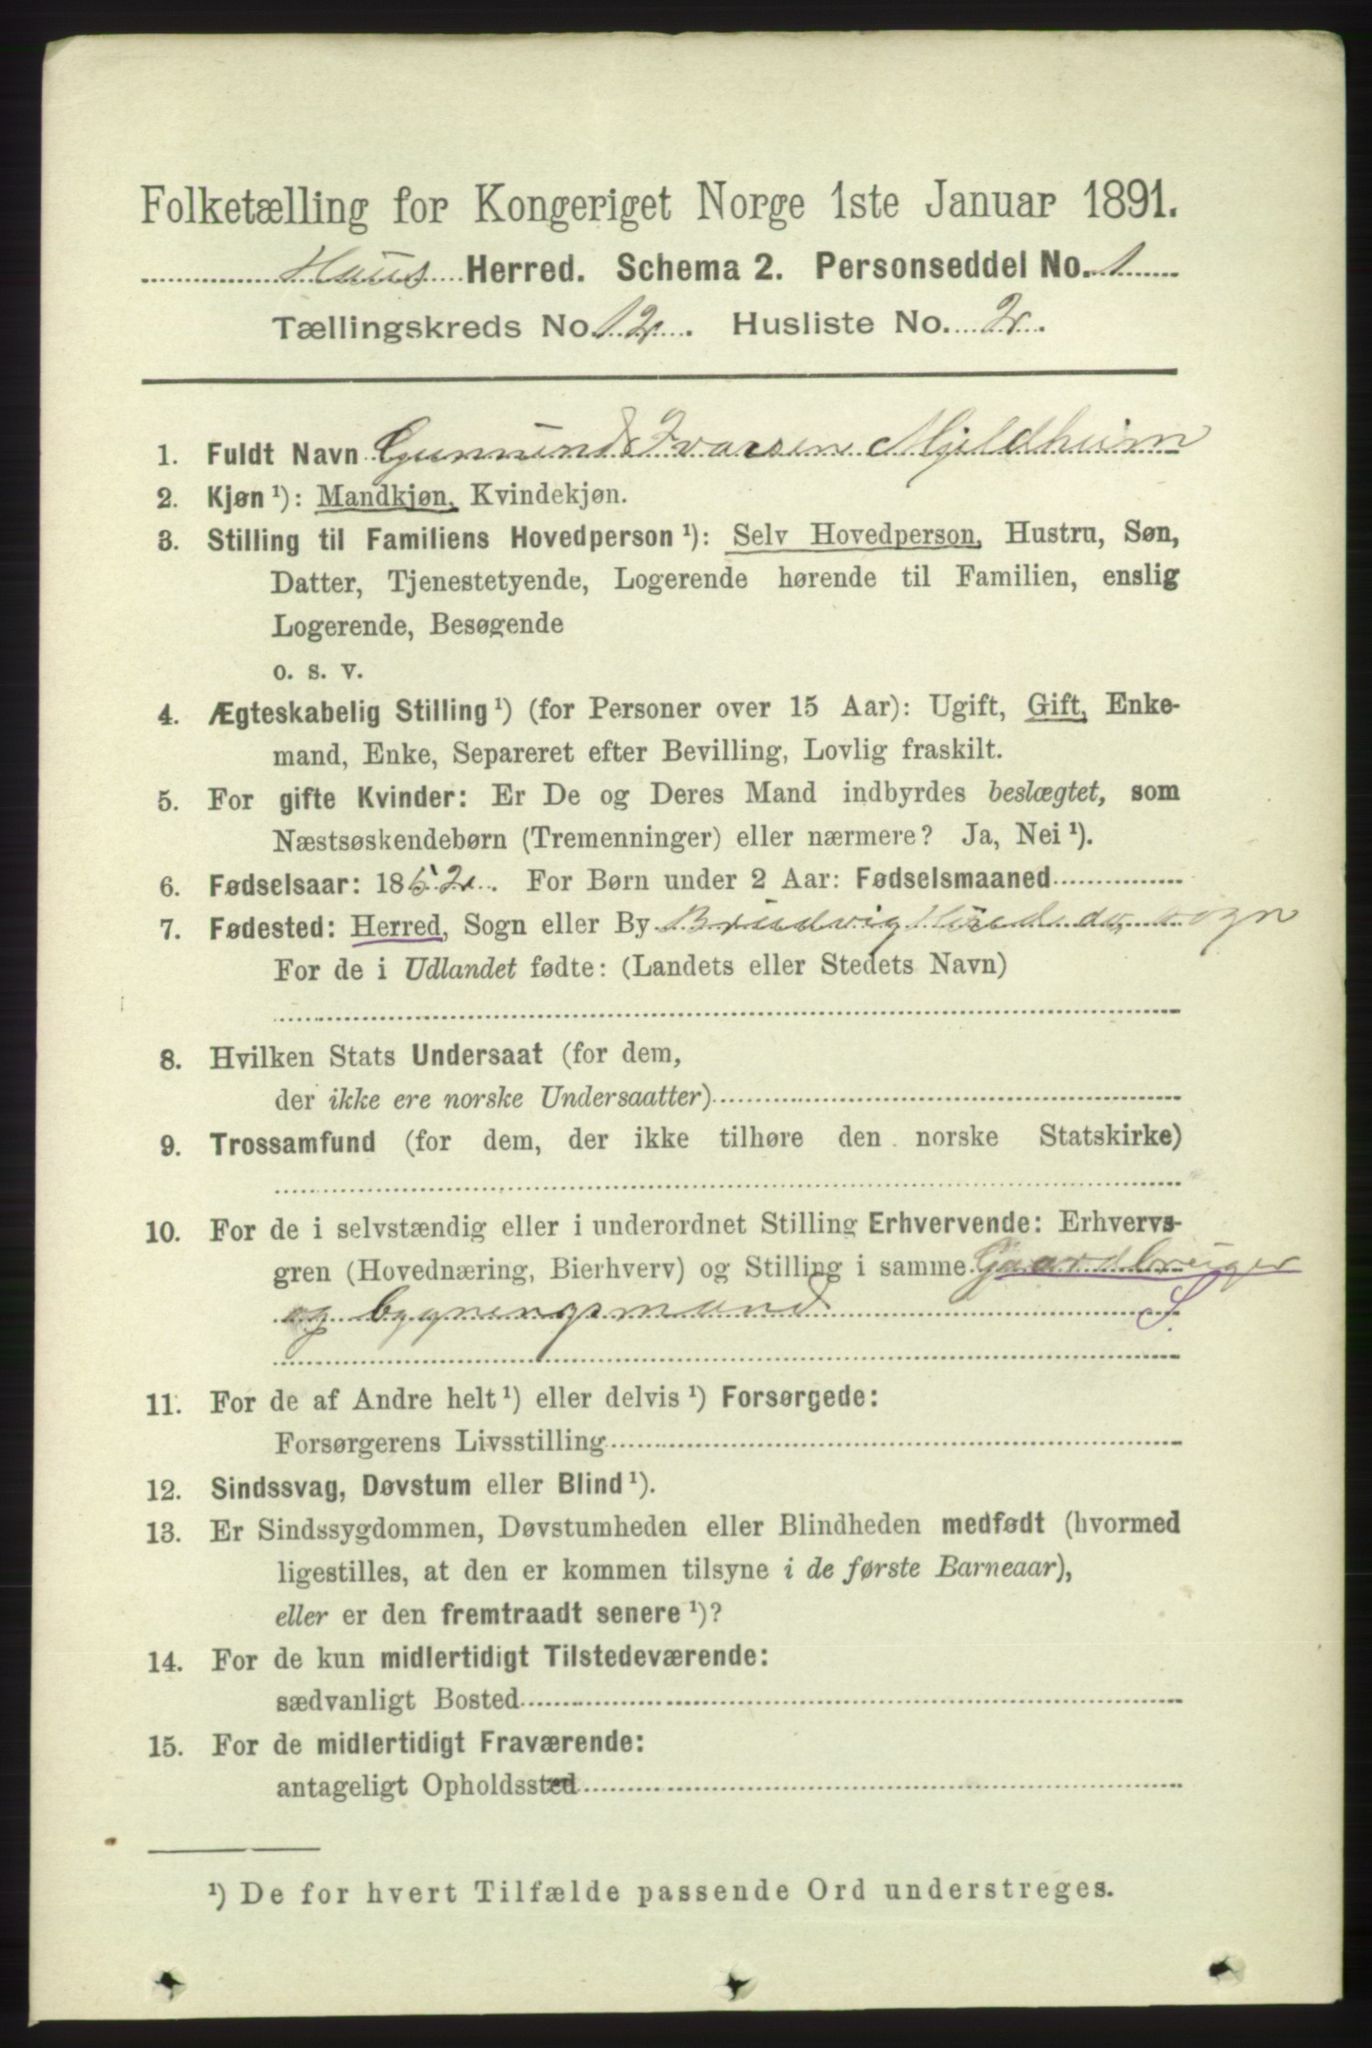 Folketælling for Kongeriget Norge 1ste Januar 1891.
Haus Herred. Schema 2. Personseddel No. 1
Tællingskreds No. 12. Husliste No. 2.
1. Fuldt Navn Gunnund Ivarsen Mjeldheim
2. Kjøn ¹): Mandkjøn, Kvindekjøn.
3. Stilling til Familiens Hovedperson ¹): Selv Hovedperson, Hustru, Søn,
Datter, Tjenestetyende, Logerende hørende til Familien, enslig
Logerende, Besøgende
o. s. v.
4. Ægteskabelig Stilling ¹) (for Personer over 15 Aar): Ugift, Gift, Enke-
mand, Enke, Separeret efter Bevilling, Lovlig fraskilt.
5. For gifte Kvinder: Er De og Deres Mand indbyrdes beslægtet, som
Næstsøskendebørn (Tremenninger) eller nærmere? Ja, Nei ¹).
6. Fødselsaar: 1852. For Børn under 2 Aar: Fødselsmaaned
7. Fødested: Herred, Sogn eller By Brudvig sogn
For de i Udlandet fødte: (Landets eller Stedets Navn)
8. Hvilken Stats Undersaat (for dem,
der ikke ere norske Undersaatter)
9. Trossamfund (for dem, der ikke tilhøre den norske Statskirke)
10. For de i selvstændig eller i underordnet Stilling Erhvervende: Erhvervs-
gren (Hovednæring, Bierhverv) og Stilling i samme Gaardbruger
og bygningsmand S.
11. For de af Andre helt ¹) eller delvis ¹) Forsørgede:
Forsørgerens Livsstilling
12. Sindssvag, Døvstum eller Blind ¹).
13. Er Sindssygdommen, Døvstumheden eller Blindheden medfødt (hvormed
ligestilles, at den er kommen tilsyne i de første Barneaar),
eller er den fremtraadt senere ¹)?
14. For de kun midlertidigt Tilstedeværende:
sædvanligt Bosted
15. For de midlertidigt Fraværende:
antageligt Opholdssted
¹) De for hvert Tilfælde passende Ord understreges.